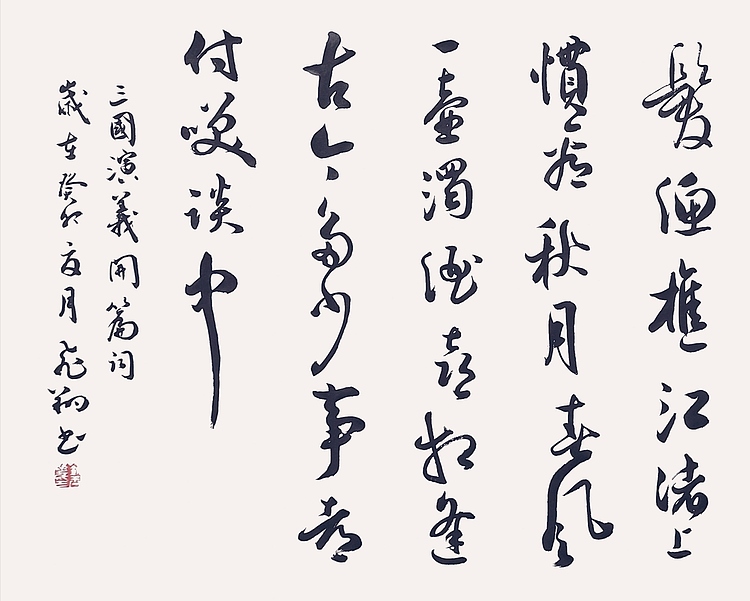 髮漁樵江渚上
慣看秋月春風
一壺濁酒喜相逢
古今多少事都
付咲談中
三國演義開篇詞
歲在癸卯夏月飛翔書